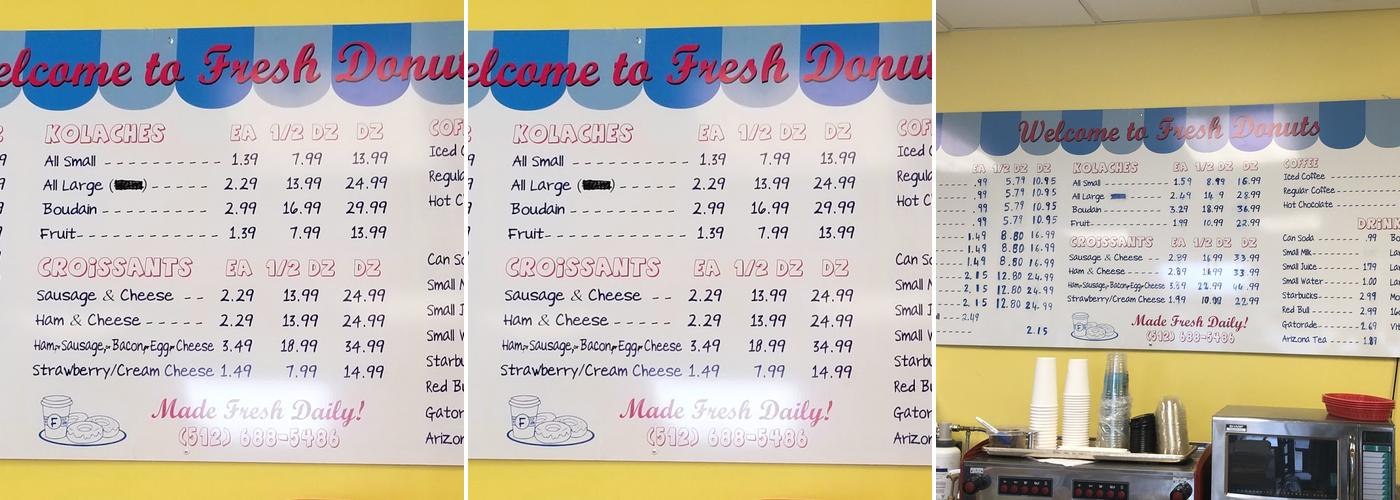 elcome to Fresh Donut
KOLACHES EA 1/2 DZ DZ
All Small 1.39 7.99 13.99
All Large ( ) 2.29 13.99 24.99
Boudain 2.99 16.99 29.99
Fruit 1.39 7.99 13.99
CROISSANTS EA 1/2 DZ DZ
Sausage & Cheese 2.29 13.99 24.99
Ham & Cheese 2.29 13.99 24.99
Ham, Sausage, Bacon, Egg, Cheese 3.49 18.99 34.99
Strawberry/Cream Cheese 1.49 7.99 14.99
Made Fresh Daily!
(512) 688-5486
COF
Iced C
Regula
Hot C
Can So
Small M
Small J
Small W
Starbu
Red Bu
Gator
Arizon
elcome to Fresh Donut
KOLACHES EA 1/2 DZ DZ
All Small 1.39 7.99 13.99
All Large ( ) 2.29 13.99 24.99
Boudain 2.99 16.99 29.99
Fruit 1.39 7.99 13.99
CROISSANTS EA 1/2 DZ DZ
Sausage & Cheese 2.29 13.99 24.99
Ham & Cheese 2.29 13.99 24.99
Ham, Sausage, Bacon, Egg, Cheese 3.49 18.99 34.99
Strawberry/Cream Cheese 1.49 7.99 14.99
Made Fresh Daily!
(512) 688-5486
COF
Iced C
Regula
Hot C
Can So
Small M
Small J
Small W
Starbu
Red Bu
Gator
Arizon
Welcome to Fresh Donuts
EA 1/2 DZ DZ
.99 5.79 10.95
.99 5.79 10.95
.99 5.79 10.95
.99 5.79 10.95
1.49 8.80 16.99
1.49 8.80 16.99
1.49 8.80 16.99
2.15 12.80 24.99
2.15 12.80 24.99
2.15 12.80 24.99
2.49
2.15
KOLACHES EA 1/2 DZ DZ
All Small 1.59 8.99 16.99
All Large 2.49 28.99
Boudain 3.29 18.99 36.99
Fruit 1.99 10.99 22.99
CROISSANTS EA 1/2 DZ DZ
Sausage & Cheese 2.89 16.99 33.99
Ham & Cheese 2.89 16.99 33.99
Ham, Sausage, Bacon, Egg, Cheese 3.89 22.99 46.99
Strawberry/Cream Cheese 1.99 10.99 22.99
Made Fresh Daily!
(512) 688-5486
COFFEE
Iced Coffee
Regular Coffee
Hot Chocolate
DRINK
Can Soda .99
Small Milk
Small Juice 1.79
Small Water 1.00
Starbucks 2.99
Red Bull 2.99
Gatorade 2.69
Arizona Tea 1.89
SHARP